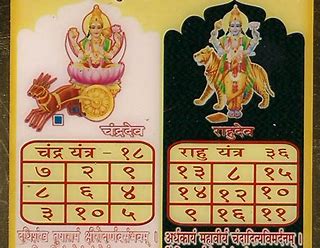 चंद्रदेव
चंद्र यंत्र - १८
७ २ ९
८ ६ ४
३ १० ५
दधिशंख तुषाराभं
राहुदेव
राहु यंत्र ३६
१३ ८ १५
१४ १२ १०
९ १६ ११
अर्धकायं महावीर्यं चंद्रादित्यविमर्दनम् ।